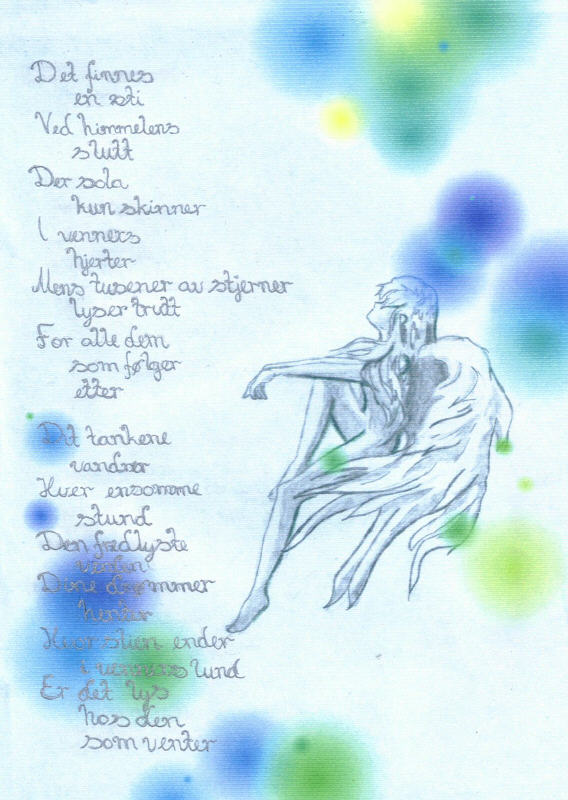 Det finnes
en sti
Ved himmelens
slutt
Der sola
kun skinner
I venners
hjerter
Mens tusener av stjerner
lyser trutt
For alle dem
som følger
etter
Dit tankene
vandrer
Hver ensomme
stund
Den fredlyste
Dine drømmer
henter
Hvor stien ender
i venners lund
Er det lys
hos den
som venter